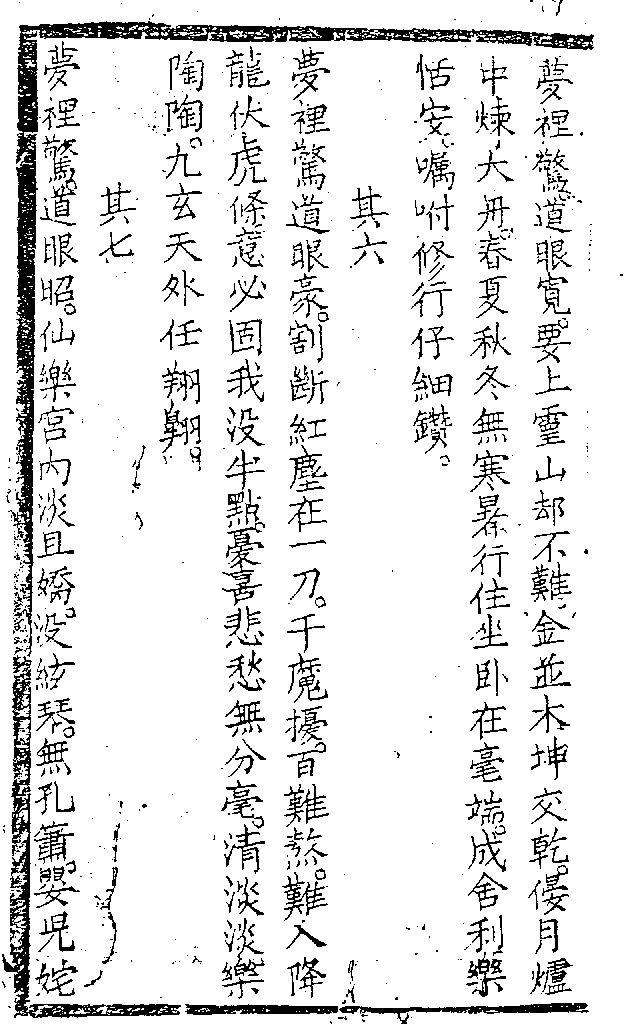 夢裡驚。道眼寬。要上靈山却不難。金並木坤交乾。偃月爐
中煉大丹。春夏秋冬無寒暑。行住坐卧在毫端。成舍利樂
恬安。囑咐修行仔細鑽。
其六
夢裡驚道眼豪。割斷紅塵在一刀。千魔擾。百難熬。難入降
龍伏虎條。意必固我没半點。憂喜悲愁無分毫。清淡淡樂
陶陶。九玄天外任翔翱。
其七
夢裡驚。道眼昭。仙樂宮內淡且嬌。没絃琴。無孔簫。嬰児姹